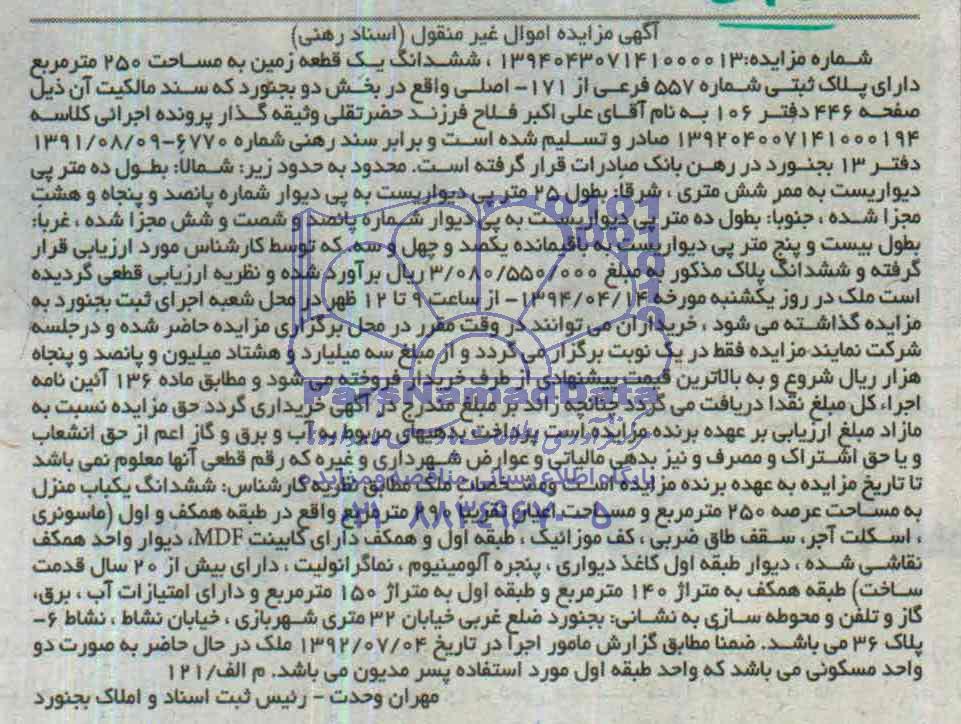 آگهی مزایده اموال غیر منقول (اسناد رهنی)
شماره مزایده:۱۳۹۴۰۴۳۰۷۱۴۱۰۰۰۰۱۳ ، ششدانگ یک قطعه زمین به مساحت ۲۵۰ مترمربع
دارای پلاک ثبتی شماره ۵۵۷ فرعی از ۱۷۱- اصلی واقع در بخش دو بجنورد که سند مالکیت آن ذیل
صفحه ۴۴۶ دفتر ۱۰۶ به نام آقای علی اکبر فلاح فرزند حضرتقلی وثیقه گذار پرونده اجرائی کلاسه
۱۳۹۲۰۴۰۰۷۱۴۱۰۰۰۱۹۴ صادر و تسلیم شده است و برابر سند رهنی شماره ۶۷۷۰-۱۳۹۱/۰۸/۰۹
دفتر ۱۳ بجنورد در رهن بانک صادرات قرار گرفته است. محدود به حدود زیر: شمالا: بطول ده متر پی
دیواریست به ممر شش متری ، شرقا: بطول ۲۵ متر پی دیواریست به پی دیوار شماره پانصد و پنجاه و هشت
مجزا شده ، جنوبا: بطول ده متر پی دیواریست به پی دیوار شماره پانصد و شصت و شش مجزا شده ، غربا:
بطول بیست و پنج متر پی دیواریست به باقیمانده یکصد و چهل و سه، که توسط کارشناس مورد ارزیابی قرار
گرفته و ششدانگ پلاک مذکور به مبلغ ۳/۰۸۰/۵۵۰/۰۰۰ ریال برآورد شده و نظریه ارزیابی قطعی گردیده
است ملک در روز یکشنبه مورخه ۱۳۹۴/۰۴/۱۴- از ساعت ۹ تا ۱۲ ظهر در محل شعبه اجرای ثبت بجنورد به
مزایده گذاشته می شود ، خریداران می توانند در وقت مقرر در محل برگزاری مزایده حاضر شده و درجلسه
شرکت نمایند.مزایده فقط در یک نوبت برگزار می گردد و از مبلغ سه میلیارد و هشتاد میلیون و پانصد و پنجاه
هزار ریال شروع و به بالاترین قیمت پیشنهادی از طرف خریدار فروخته می شود و مطابق ماده ۱۳۶ آئین نامه
اجراء کل مبلغ نقدا دریافت می گردد. چنانچه زائد بر مبلغ مندرج در آگهی خریداری گردد حق مزایده نسبت به
مازاد مبلغ ارزیابی بر عهده برنده مزایده است پرداخت بدهیهای مربوط به آب و برق و گاز اعم از حق انشعاب
و یا حق اشتراک و مصرف و نیز بدهی مالیاتی و عوارض شهرداری و غیره که رقم قطعی آنها معلوم نمی باشد
تا تاریخ مزایده به عهده برنده مزایده است و مشخصات ملک مطابق نظریه کارشناس: ششدانگ یکباب منزل
به مساحت عرصه ۲۵۰ مترمربع و مساحت اعیان تقریبا ۲۹۰ مترمربع واقع در طبقه همکف و اول (ماسونری
، اسکلت آجر، سقف طاق ضربی ، کف موزائیک ، طبقه اول و همکف دارای کابینت MDF، دیوار واحد همکف
نقاشی شده ، دیوار طبقه اول کاغذ دیواری ، پنجره آلومینیوم ، نماگرانولیت ، دارای بیش از ۲۰ سال قدمت
ساخت) طبقه همکف به متراژ ۱۴۰ مترمربع و طبقه اول به متراژ ۱۵۰ مترمربع و دارای امتیازات آب ، برق،
گاز و تلفن و محوطه سازی به نشانی: بجنورد ضلع غربی خیابان ۳۲ متری شهربازی ، خیابان نشاط ، نشاط ۶-
پلاک ۳۶ می باشد. ضمنا مطابق گزارش مامور اجرا در تاریخ ۱۳۹۲/۰۷/۰۴ ملک در حال حاضر به صورت دو
واحد مسکونی می باشد که واحد طبقه اول مورد استفاده پسر مدیون می باشد. م الف/۱۲۱
مهران وحدت - رئیس ثبت اسناد و املاک بجنورد
ParsNamadData
پایگاه اطلاع رسانی مناقصه و مزایده
۰۲۱-۸۸۳۴۹۶۷۰-۵